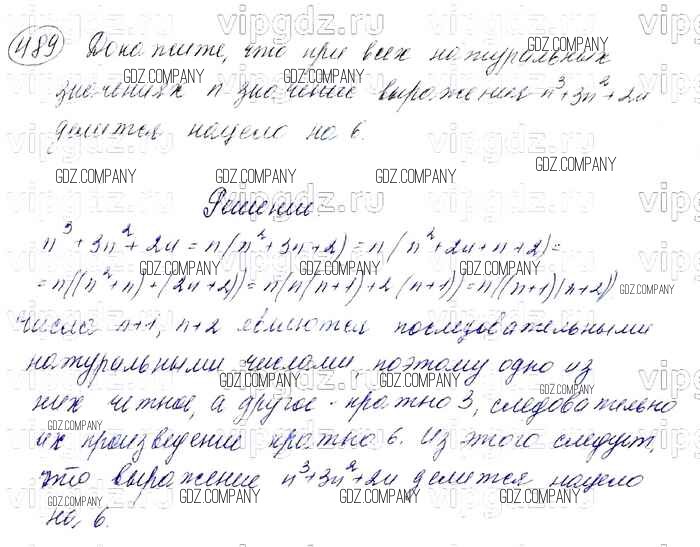 489 Докажите, что при всех натуральных
значениях n значение выражения n³+3n²+2n
делится нацело на 6.
Решение
n³+3n²+2n=n(n²+3n+2)=n(n²+2n+n+2)=
=n((n²+n)+(2n+2))=n(n(n+1)+2(n+1))=n((n+1)(n+2))
Числа n+1, n+2 являются последовательными
натуральными числами, поэтому одно из
них четное, а другое - кратно 3, следовательно
их произведение кратно 6. Из этого следует,
что выражение n³+3n²+2n делится нацело
на 6.